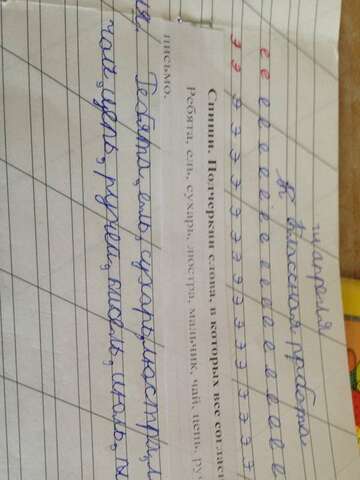 апреля
Классная работа
е е е е е е е е е е е е е е е е
э э э э э э э э э э э э э э э э
Спиши. Подчеркни слова, в которых все соглас
Ребята, ель, сухарь, люстра, мальчик, чай, цепь, ру
письмо.
Ребята, ель, сухарь, люстра, м
чай, цепь, ручей, кисель, июль,